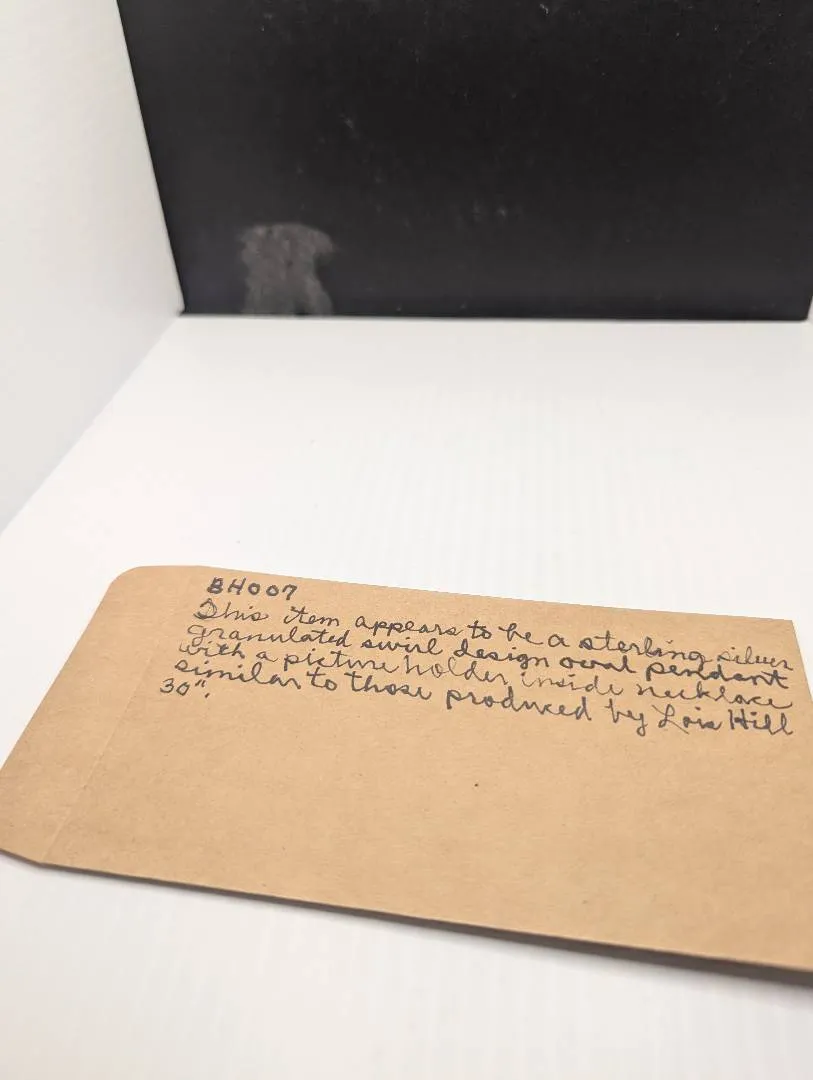 BH007
This item appears to be a sterling silver
granulated swirl design oval pendant
with a picture holder inside necklace
similar to those produced by Lois Hill
30".